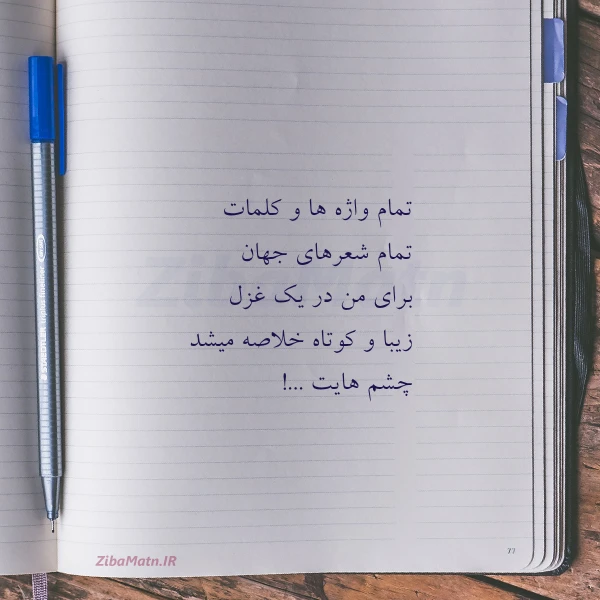 تمام واژه ها و کلمات
تمام شعرهای جهان
برای من در یک غزل
زیبا و کوتاه خلاصه میشد
چشم هایت ...!
ZibaMatn
77
ZibaMatn.IR